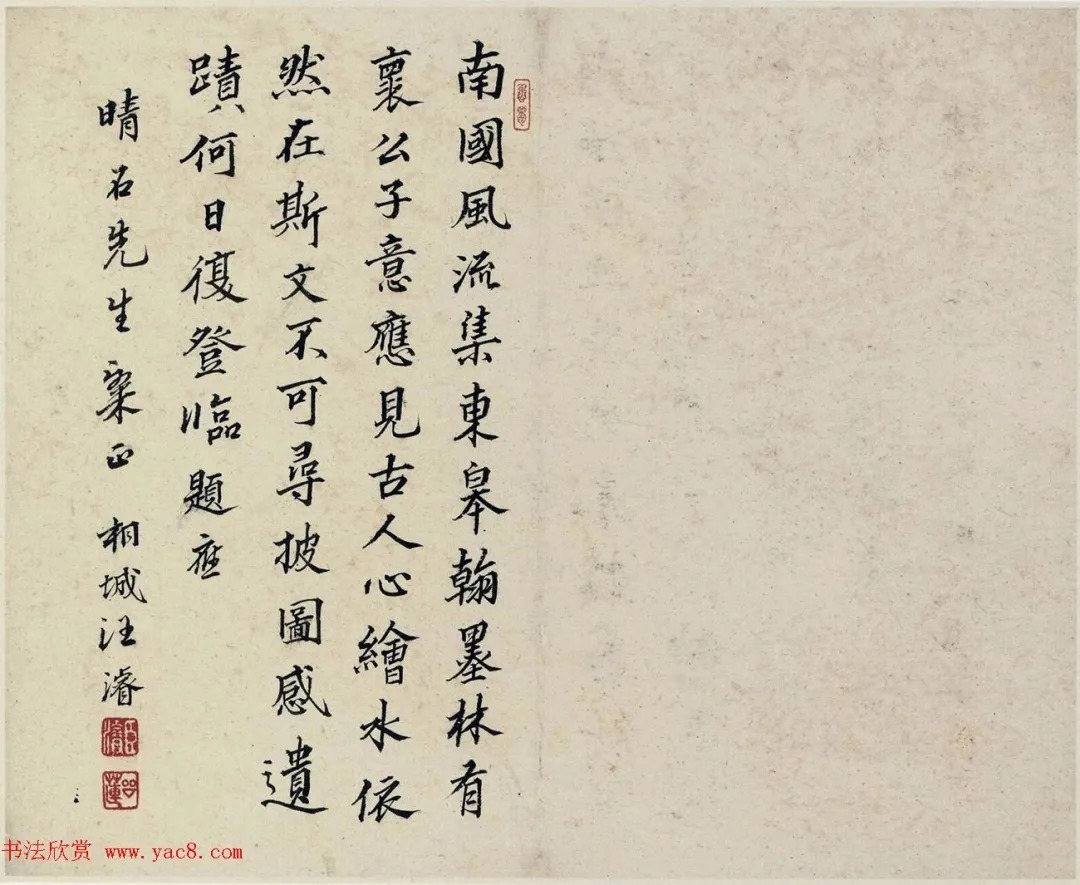 南國風流集東皋翰墨林有
裏公子意應見古人心繪水依
然在斯文不可尋披圖感遺
蹟何日復登臨題應
晴石先生粲正 桐城汪濬
书法欣赏 www.yac8.com